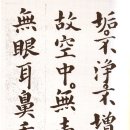 垢不淨不增
故空中無
無眼耳鼻